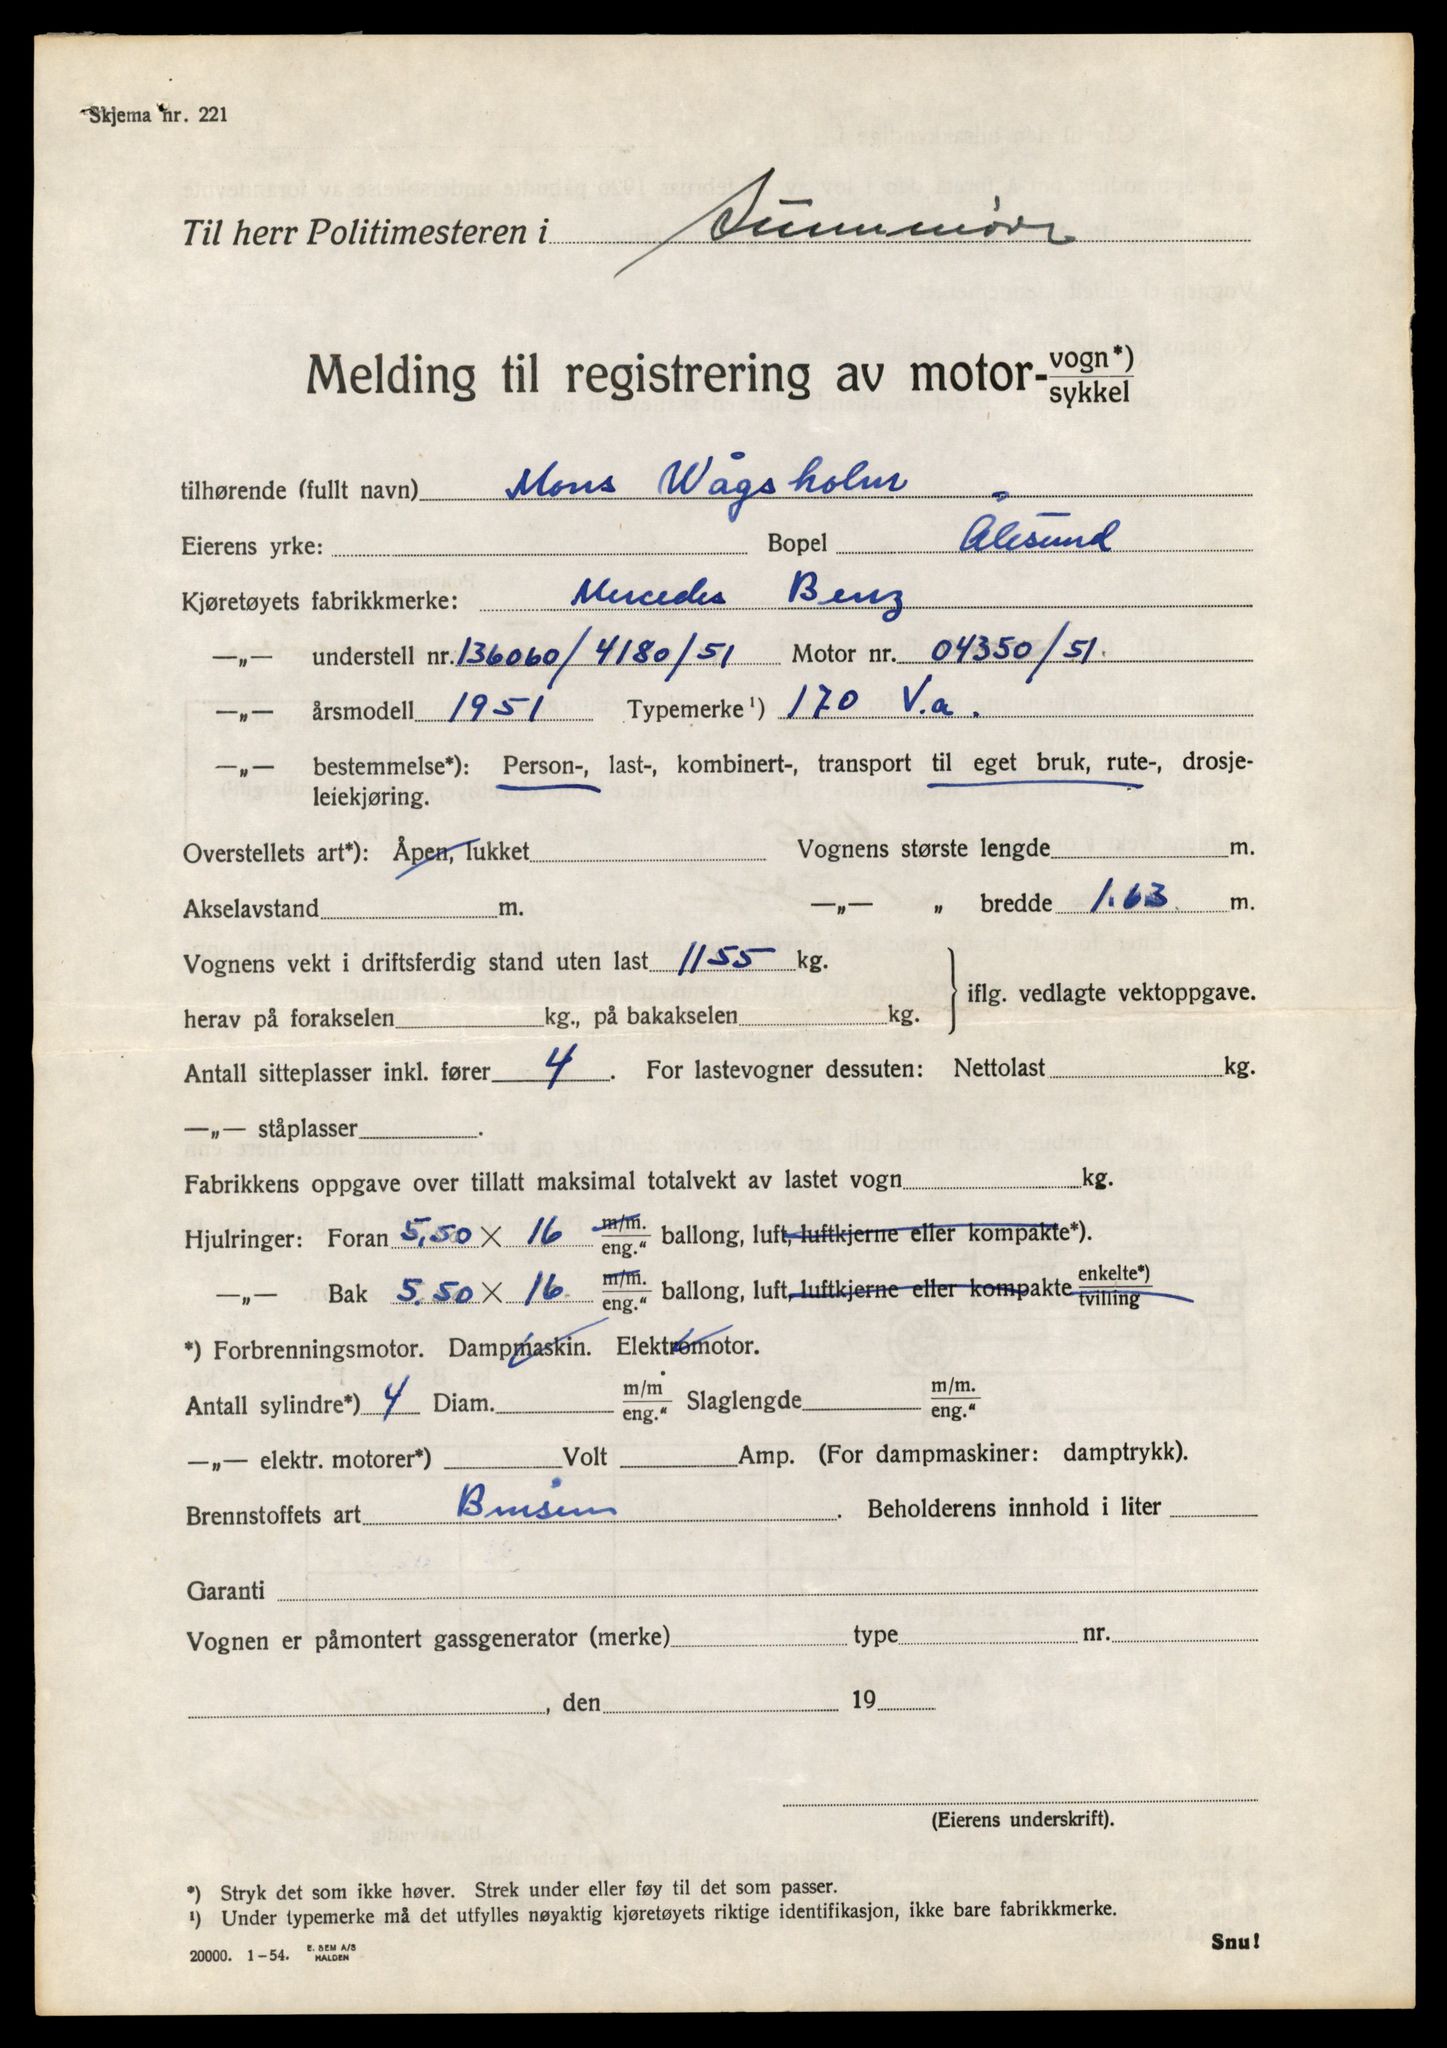 Skjema nr. 221
Til herr Politimesteren i Sunnmøre
Melding til registrering av motor-vogn*)
sykkel
tilhørende (fullt navn) Mons Wågsholm
Eierens yrke: Bopel Ålesund
Kjøretøyets fabrikkmerke: Mercedes Benz
—„— understell nr. 136060/4180/51 Motor nr. 04350/51.
—„— årsmodell 1951 Typemerke¹) 170 V.a.
—„— bestemmelse*): Person-, last-, kombinert-, transport til eget bruk, rute-, drosje-
leiekjøring.
Overstellets art*): Åpen, lukket Vognens største lengde m.
Akselavstand m. —„— „ bredde 1.63 m.
Vognens vekt i driftsferdig stand uten last 1155 kg.
iflg. vedlagte vektoppgave.
herav på forakselen kg., på bakakselen kg.
Antall sitteplasser inkl. fører 4 . For lastevogner dessuten: Nettolast kg.
—„— ståplasser .
Fabrikkens oppgave over tillatt maksimal totalvekt av lastet vogn kg.
Hjulringer: Foran 5,50 × 16 m/m. eng.“ ballong, luft, luftkjerne eller kompakte*).
—„— Bak 5.50 × 16 m/m. eng.“ ballong, luft, luftkjerne eller kompakte enkelte*) tvilling
*) Forbrenningsmotor. Dampmaskin. Elektromotor.
Antall sylindre*) 4 Diam. m/m eng.“ Slaglengde m/m. eng.“
—„— elektr. motorer*) Volt Amp. (For dampmaskiner: damptrykk).
Brennstoffets art Bensin . Beholderens innhold i liter
Garanti
Vognen er påmontert gassgenerator (merke) type nr.
, den 19
(Eierens underskrift).
*) Stryk det som ikke høver. Strek under eller føy til det som passer.
¹) Under typemerke må det utfylles nøyaktig kjøretøyets riktige identifikasjon, ikke bare fabrikkmerke.
20000. 1–54. E. SEM A/S HALDEN
Snu!